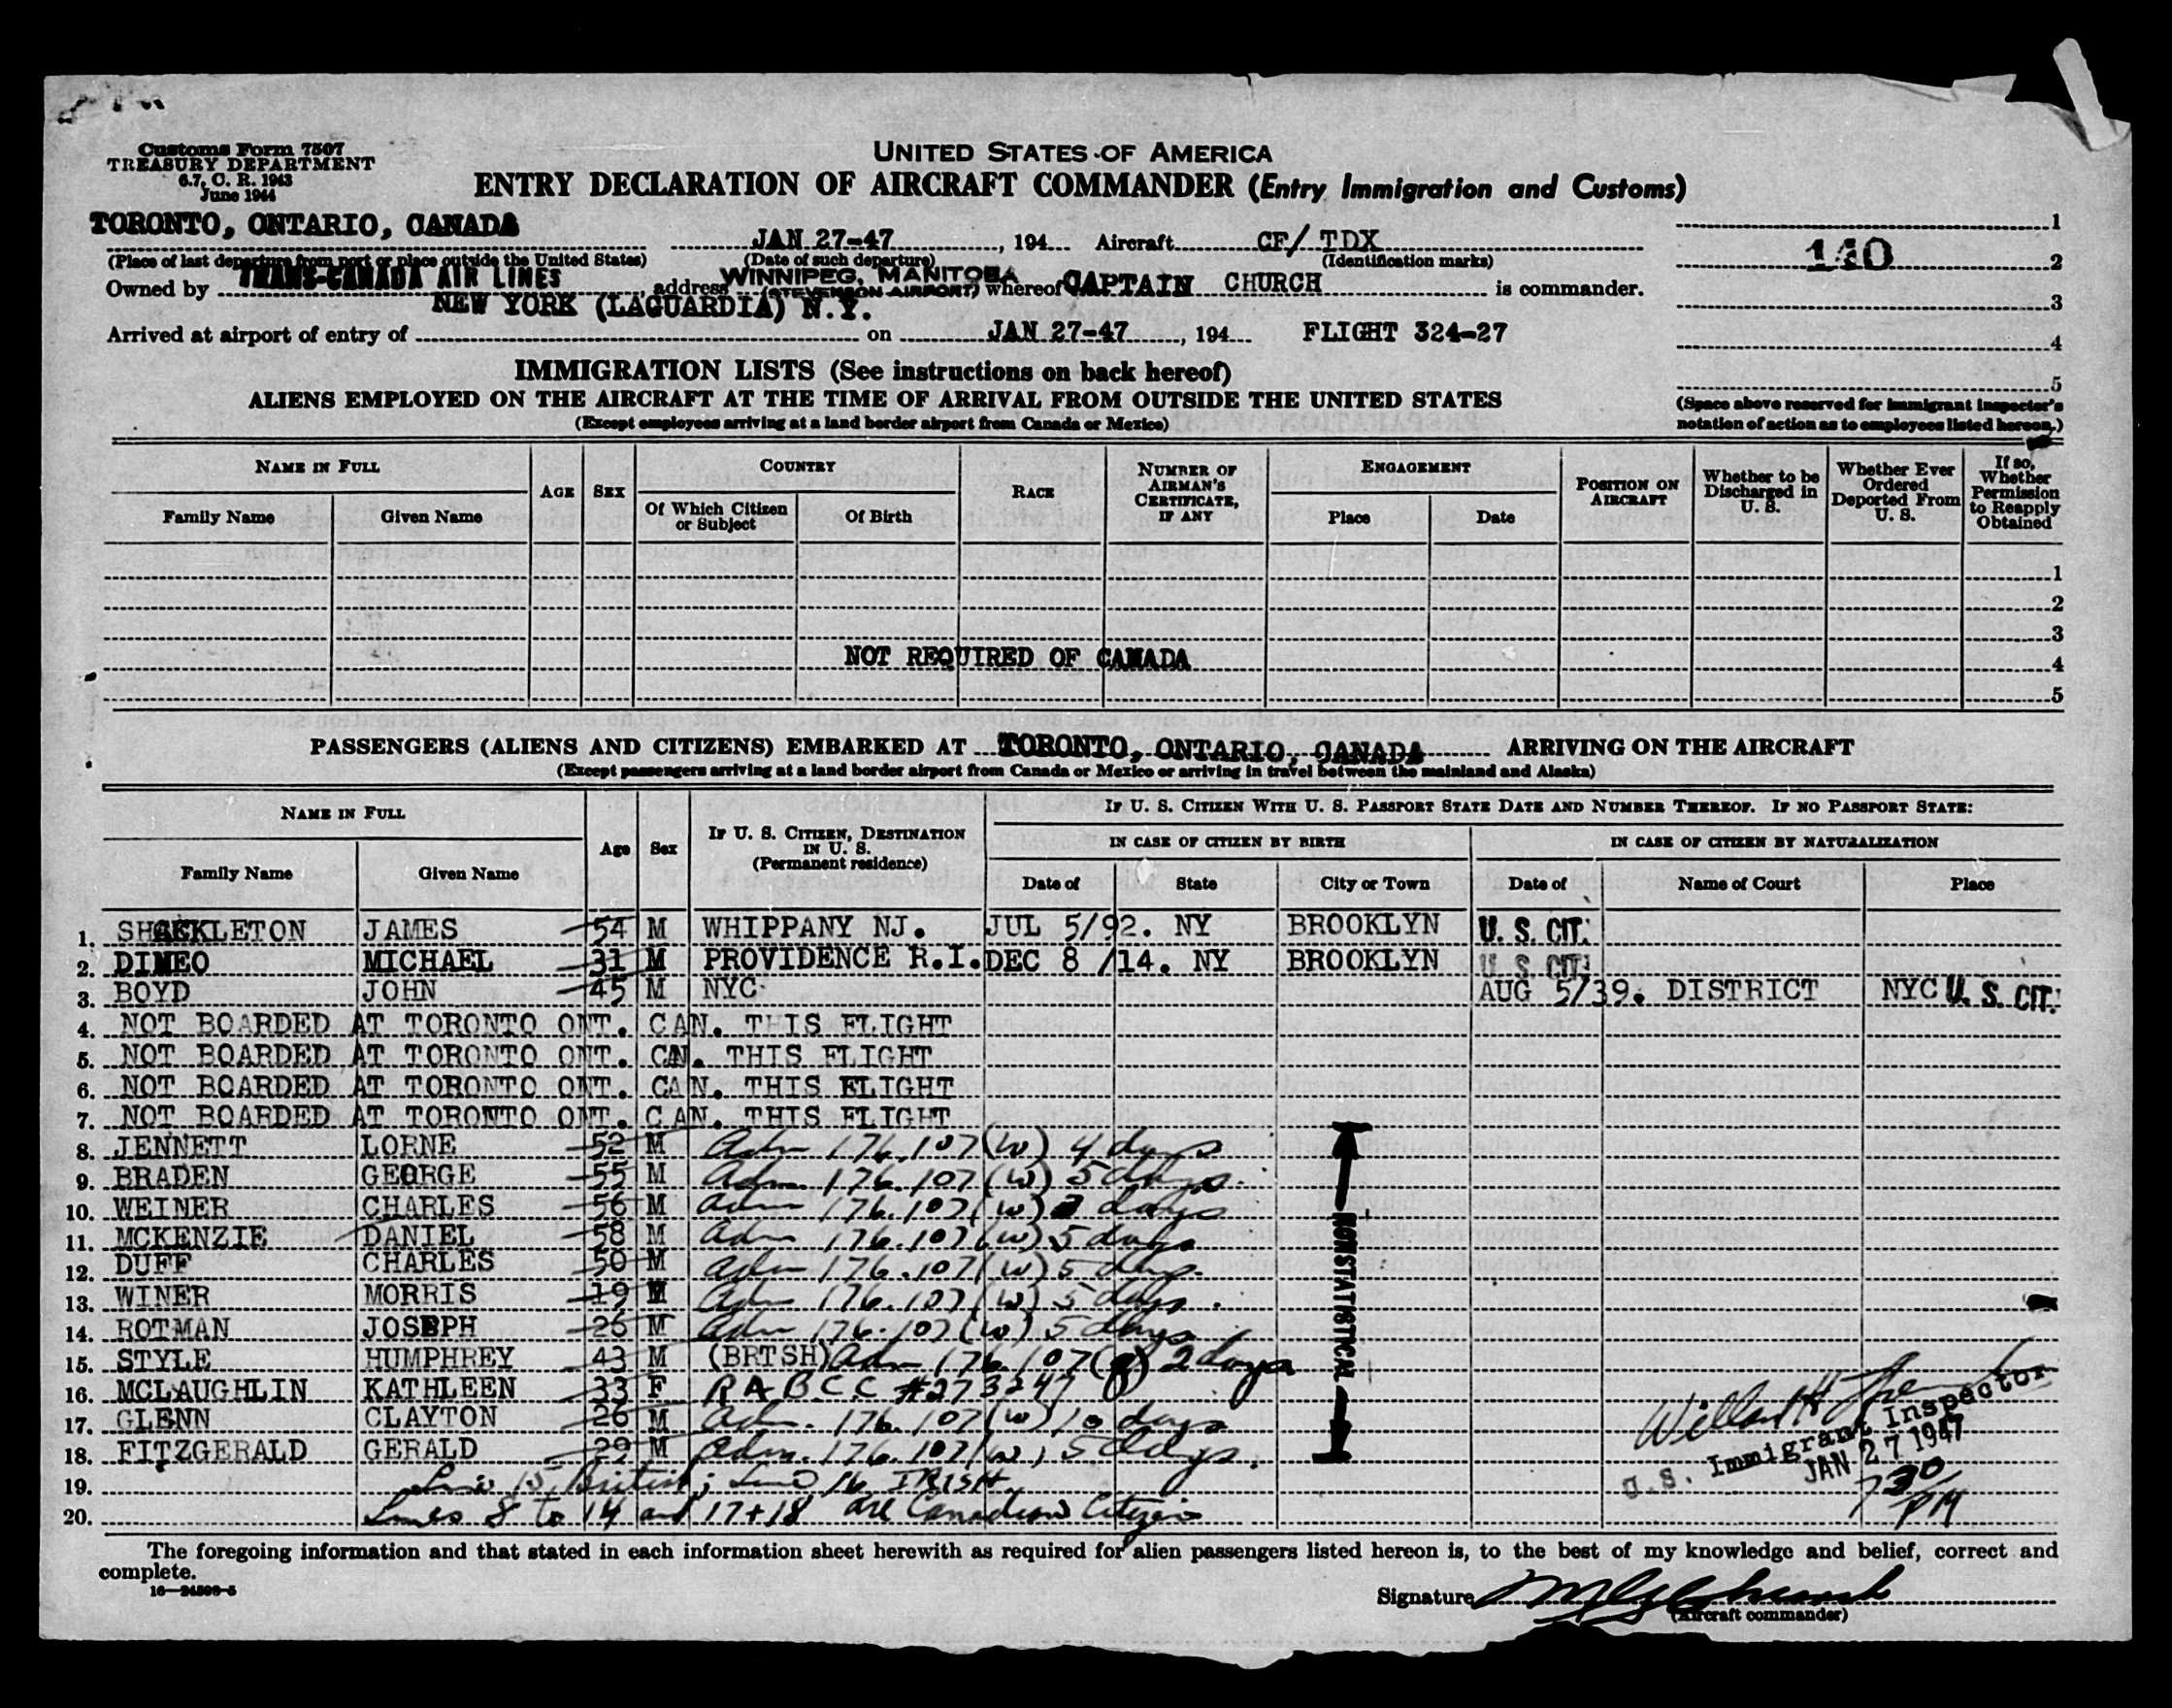 Customs Form 7507
TREASURY DEPARTMENT
6.7, C. R. 1943
June 1944
UNITED STATES OF AMERICA
ENTRY DECLARATION OF AIRCRAFT COMMANDER (Entry Immigration and Customs)
TORONTO, ONTARIO, CANADA JAN 27-47, 194 Aircraft CF/ TDX
(Place of last departure from port or place outside the United States) (Date of such departure) (Identification marks)
Owned by TRANS-CANADA AIR LINES, address WINNIPEG, MANITOBA (STEVENSON AIRPORT) whereof CAPTAIN CHURCH is commander.
NEW YORK (LAGUARDIA) N.Y.
Arrived at airport of entry of on JAN 27-47, 194 FLIGHT 324-27
1
140 2
3
4
5
(Space above reserved for immigrant inspector's
notation of action as to employees listed hereon.)
IMMIGRATION LISTS (See instructions on back hereof)
ALIENS EMPLOYED ON THE AIRCRAFT AT THE TIME OF ARRIVAL FROM OUTSIDE THE UNITED STATES
(Except employees arriving at a land border airport from Canada or Mexico)
NAME IN FULL
Family Name Given Name
AGE SEX
COUNTRY
Of Which Citizen or Subject Of Birth
RACE
NUMBER OF AIRMAN'S CERTIFICATE, IF ANY
ENGAGEMENT
Place Date
POSITION ON AIRCRAFT
Whether to be Discharged in U. S.
Whether Ever Ordered Deported From U. S.
If so, Whether Permission to Reapply Obtained
1
2
3
NOT REQUIRED OF CANADA 4
5
PASSENGERS (ALIENS AND CITIZENS) EMBARKED AT TORONTO, ONTARIO, CANADA ARRIVING ON THE AIRCRAFT
(Except passengers arriving at a land border airport from Canada or Mexico or arriving in travel between the mainland and Alaska)
NAME IN FULL
Family Name Given Name
Age Sex
IF U. S. CITIZEN, DESTINATION IN U. S.
(Permanent residence)
IF U. S. CITIZEN WITH U. S. PASSPORT STATE DATE AND NUMBER THEREOF. IF NO PASSPORT STATE:
IN CASE OF CITIZEN BY BIRTH IN CASE OF CITIZEN BY NATURALIZATION
Date of State City or Town Date of Name of Court Place
1. SHACKLETON JAMES 54 M WHIPPANY NJ. JUL 5/92. NY BROOKLYN U. S. CIT.
2. DIMEO MICHAEL 31 M PROVIDENCE R.I. DEC 8 /14. NY BROOKLYN U. S. CIT.
3. BOYD JOHN 45 M NYC AUG 5/39. DISTRICT NYC U. S. CIT.
4. NOT BOARDED AT TORONTO ONT. CAN. THIS FLIGHT
5. NOT BOARDED AT TORONTO ONT. CAN. THIS FLIGHT
6. NOT BOARDED AT TORONTO ONT. CAN. THIS FLIGHT
7. NOT BOARDED AT TORONTO ONT. CAN. THIS FLIGHT
8. JENNETT LORNE 52 M Adm 176.107(W) 4 days
9. BRADEN GEORGE 55 M Adm. 176.107(W) 5 days.
10. WEINER CHARLES 56 M Adm 176.107(W) days
11. MCKENZIE DANIEL 58 M Adm 176.107(W) 5 days
12. DUFF CHARLES 50 M Adm 176.107(W) 5 days.
13. WINER MORRIS 19 M Adm 176.107(W) 5 days.
14. ROTMAN JOSEPH 26 M Adm 176.107(W) 5 days
15. STYLE HUMPHREY 43 M (BRTSH) Adm 176.107 2 days
16. MCLAUGHLIN KATHLEEN 33 F RABCC #273247
17. GLENN CLAYTON 26 M Adm. 176.107(W) 10 days
18. FITZGERALD GERALD 29 M Adm. 176.107(W) 5 days.
NONSTATISTICAL
19. Line 15, British; Line 16 IRISH
20. Lines 8 to 14 and 17+18 are Canadian Citizens
U.S. Immigrant Inspector
JAN 27 1947
7 30
PM
The foregoing information and that stated in each information sheet herewith as required for alien passengers listed hereon is, to the best of my knowledge and belief, correct and
complete.
Signature
(Aircraft commander)